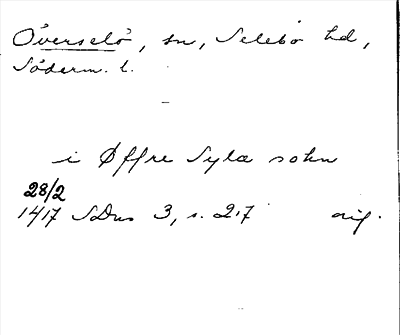 Överselö, sn, Selebo hd,
Söderm. l.
i Øffre Sylæ sokn
28/2
1417 SDns 3, s. 217 orig.